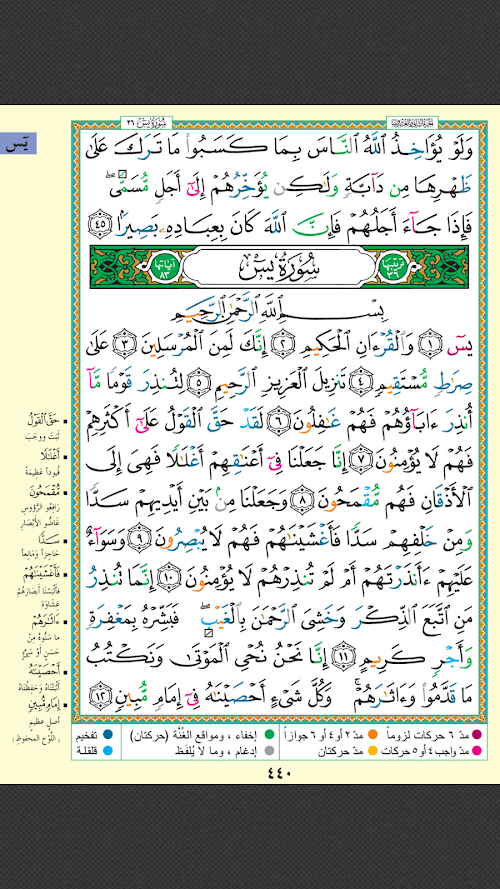 سُورَةُ يسٓ ٣٦
يسٓ
وَلَوْ يُؤَاخِذُ ٱللَّهُ ٱلنَّاسَ بِمَا كَسَبُوا۟ مَا تَرَكَ عَلَىٰ
ظَهْرِهَا مِن دَآبَّةٍ وَلَـٰكِن يُؤَخِّرُهُمْ إِلَىٰٓ أَجَلٍ مُّسَمًّى ۖ
فَإِذَا جَآءَ أَجَلُهُمْ فَإِنَّ ٱللَّهَ كَانَ بِعِبَادِهِۦ بَصِيرًۢا ٤٥
ترتيبها ٣٦ سُورَةُ يسٓ آياتها ٨٣
بِسْمِ ٱللَّهِ ٱلرَّحْمَـٰنِ ٱلرَّحِيمِ
يسٓ ١ وَٱلْقُرْءَانِ ٱلْحَكِيمِ ٢ إِنَّكَ لَمِنَ ٱلْمُرْسَلِينَ ٣ عَلَىٰ
صِرَٰطٍ مُّسْتَقِيمٍ ٤ تَنزِيلَ ٱلْعَزِيزِ ٱلرَّحِيمِ ٥ لِتُنذِرَ قَوْمًا مَّآ
أُنذِرَ ءَابَآؤُهُمْ فَهُمْ غَـٰفِلُونَ ٦ لَقَدْ حَقَّ ٱلْقَوْلُ عَلَىٰٓ أَكْثَرِهِمْ
فَهُمْ لَا يُؤْمِنُونَ ٧ إِنَّا جَعَلْنَا فِىٓ أَعْنَـٰقِهِمْ أَغْلَـٰلًا فَهِىَ إِلَى
ٱلْأَذْقَانِ فَهُم مُّقْمَحُونَ ٨ وَجَعَلْنَا مِنۢ بَيْنِ أَيْدِيهِمْ سَدًّا
وَمِنْ خَلْفِهِمْ سَدًّا فَأَغْشَيْنَـٰهُمْ فَهُمْ لَا يُبْصِرُونَ ٩ وَسَوَآءٌ
عَلَيْهِمْ ءَأَنذَرْتَهُمْ أَمْ لَمْ تُنذِرْهُمْ لَا يُؤْمِنُونَ ١٠ إِنَّمَا تُنذِرُ
مَنِ ٱتَّبَعَ ٱلذِّكْرَ وَخَشِىَ ٱلرَّحْمَـٰنَ بِٱلْغَيْبِ ۖ فَبَشِّرْهُ بِمَغْفِرَةٍ
وَأَجْرٍ كَرِيمٍ ١١ إِنَّا نَحْنُ نُحْىِ ٱلْمَوْتَىٰ وَنَكْتُبُ
مَا قَدَّمُوا۟ وَءَاثَـٰرَهُمْ ۚ وَكُلَّ شَىْءٍ أَحْصَيْنَـٰهُ فِىٓ إِمَامٍ مُّبِينٍ ١٢
حَقَّ ٱلْقَوْلُ
ثَبَتَ ووجَبَ
أَغْلَـٰلًا
قُيوداً عَظِيمَةً
مُّقْمَحُونَ
رَافِعُو الرُّؤُوسِ
غَاضُّو الأبْصَارِ
سَدًّا
حَاجِزاً وَمَانِعاً
فَأَغْشَيْنَـٰهُمْ
فَألْبَسْنَا أبْصَارَهُمْ
غِشَاوَةً
ءَاثَـٰرَهُمْ
ما سَنُّوهُ مِنْ
حَسَنٍ أَوْ سَيِّئٍ
أَحْصَيْنَـٰهُ
أثْبَتْنَاهُ وَحَفِظْنَاهُ
إِمَامٍ مُّبِينٍ
أصلٍ عظيمٍ
(اللَّوْحِ المحفوظِ)
مدّ ٦ حركات لزوماً مدّ ٢ أو ٤ أو ٦ جوازاً إخفاء ، ومواقع الغُنَّة (حركتان) تفخيم
مدّ واجب ٤ أو ٥ حركات مدّ حركتان إدغام ، وما لا يُلفَظ قلقلة
٤٤٠